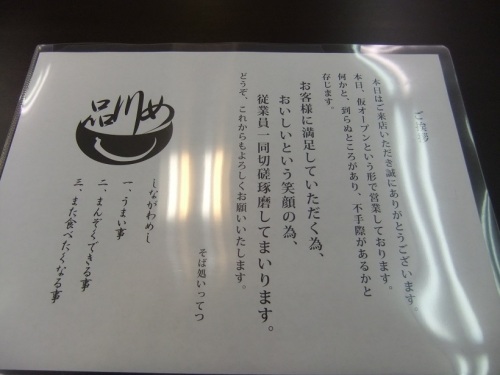 ご挨拶
本日はご来店いただき誠にありがとうございます。
本日、仮オープンという形で営業しております。
何かと、到らぬところがあり、不手際があるかと
存じます。
お客様に満足していただく為、
おいしいという笑顔の為、
従業員一同切磋琢磨してまいります。
どうぞ、これからもよろしくお願いいたします。
そば処いってつ
品川め
しながわめし
一、うまい事
二、まんぞくできる事
三、また食べたくなる事